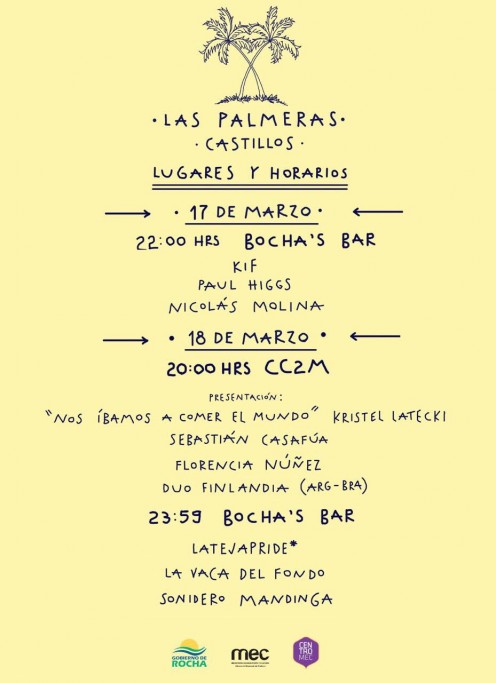 • LAS PALMERAS •
• CASTILLOS •
LUGARES Y HORARIOS
• 17 DE MARZO •
22:00 HRS BOCHA'S BAR
KIF
PAUL HIGGS
NICOLÁS MOLINA
• 18 DE MARZO •
20:00 HRS CC2M
PRESENTACIÓN:
"NOS ÍBAMOS A COMER EL MUNDO" KRISTEL LATECKI
SEBASTIÁN CASAFÚA
FLORENCIA NÚÑEZ
DUO FINLANDIA (ARG-BRA)
23:59 BOCHA'S BAR
LATEJAPRIDE*
LA VACA DEL FONDO
SONIDERO MANDINGA
GOBIERNO DE
ROCHA
mec
CEN
TRO
MEC